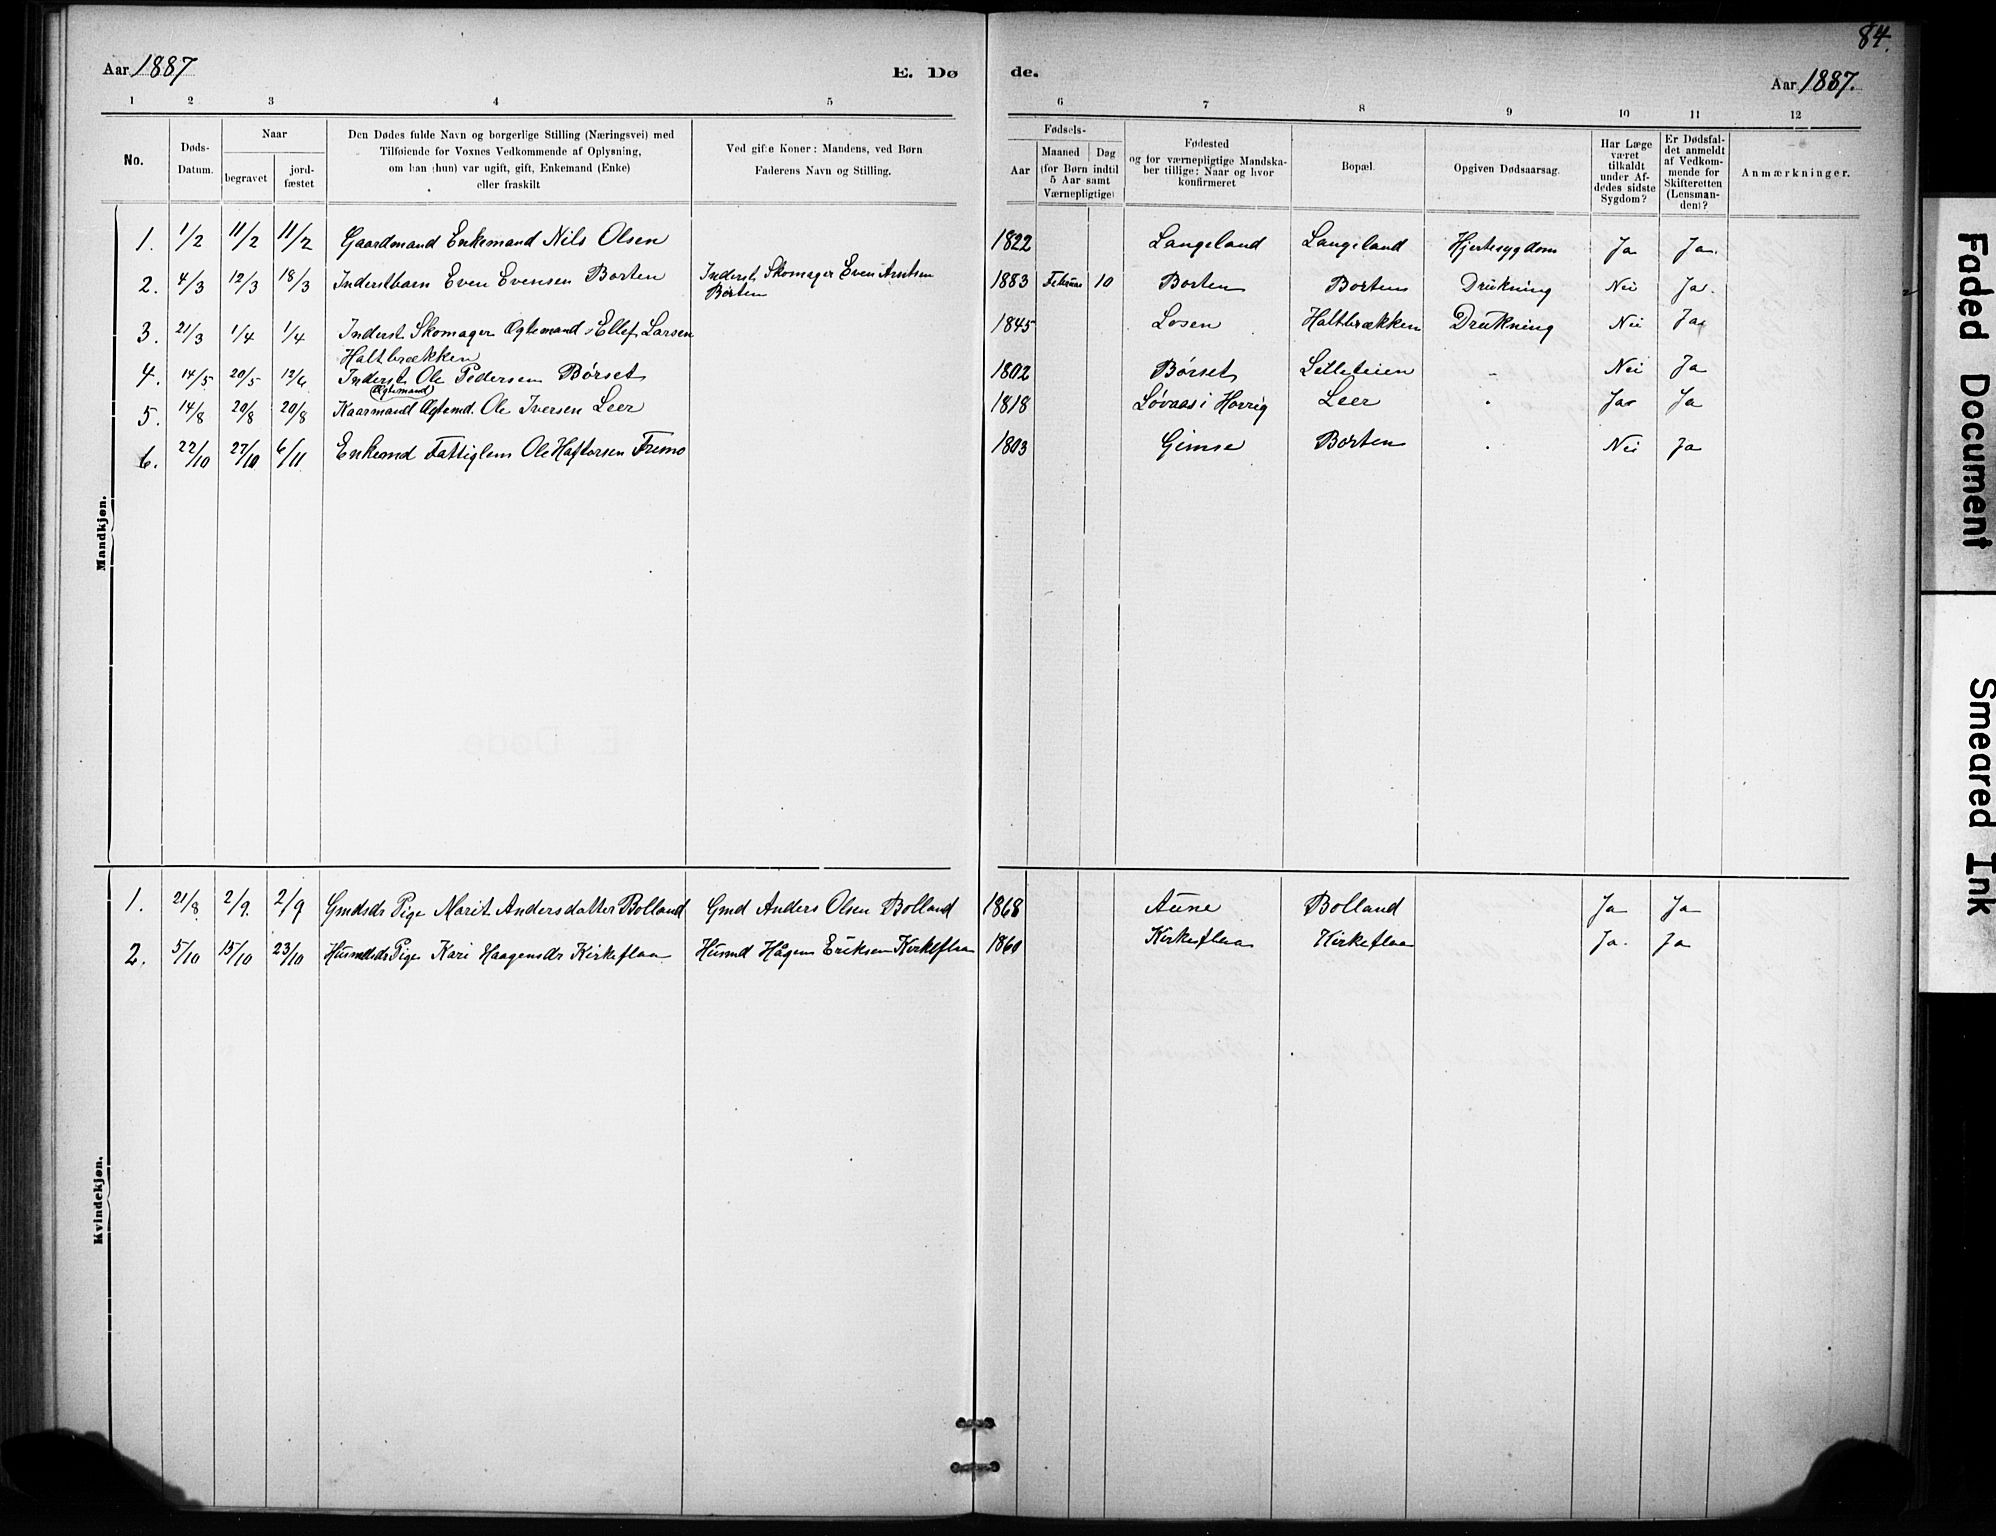 84.
Aar 1887
E. Dø
de.
Aar 1887.
1 2 3 4 5 6 7 8 9 10 11 12
No.
Døds-
Datum.
Naar
begravet
jord-
fæstet
Den Dødes fulde Navn og borgerlige Stilling (Næringsvei) med
Tilføiende for Voxnes Vedkommende af Oplysning,
om han (hun) var ugift, gift, Enkemand (Enke)
eller fraskilt
Ved gifte Koner: Mandens, ved Børn
Faderens Navn og Stilling.
Fødsels-
Aar
Maaned Dag
(for Børn indtil
5 Aar samt
Værnepligtige)
Fødested
og for værnepligtige Mandska-
ber tillige: Naar og hvor
konfirmeret
Bopæl.
Opgiven Dødsaarsag.
Har Læge
været
tilkaldt
under Af-
dødes sidste
Sygdom?
Er Dødsfal-
det anmeldt
af Vedkom-
mende for
Skifteretten
(Lensman-
den)?
Anmærkninger.
Mandkjøn.
1. 1/2 11/2 11/2 Gaardmand Enkemand Nils Olsen 1822 Langeland Langeland Hjertesygdom Ja Ja.
2. 4/3 12/3 18/3 Inderstbarn Even Evensen Borten Inderst Skomager Even Arntsen 1883 Februar 10 Borten Borten Drukning Nei Ja.
Borten
3. 21/3 1/4 1/4 Inderst Skomager Ægtemand Ellef Larsen 1845 Losen Haltbrækken Drukning Nei Ja
Haltbrækken
4. 14/5 20/5 12/6 Inderst Ole Pedersen Børset 1802 Børset Litleteien - Nei Ja
(Ægtemand)
5. 14/8 20/8 20/8 Kaarmand Ægtemd. Ole Iversen Leer 1818 Løvaas i Horrig Leer Ja Ja
6. 22/10 27/10 6/11 Enkemd Fattiglem Ole Haftorsen Fremo 1803 Gimse Borten Nei Ja
Kvindekjøn.
1. 21/8 2/9. 2/9 Gmdsdr Pige Marit Andersdatter Bolland Gmd Anders Olsen Bolland 1868 Aune Bolland Ja Ja
2. 5/10 15/10 23/10 Husmdsdr Pige Kari Haagensdr Kirkeflaa Husmd Hågen Eriksen Kirkeflaa 1860 Kirkeflaa Kirkeflaa Ja. Ja
Faded Document
Smeared Ink